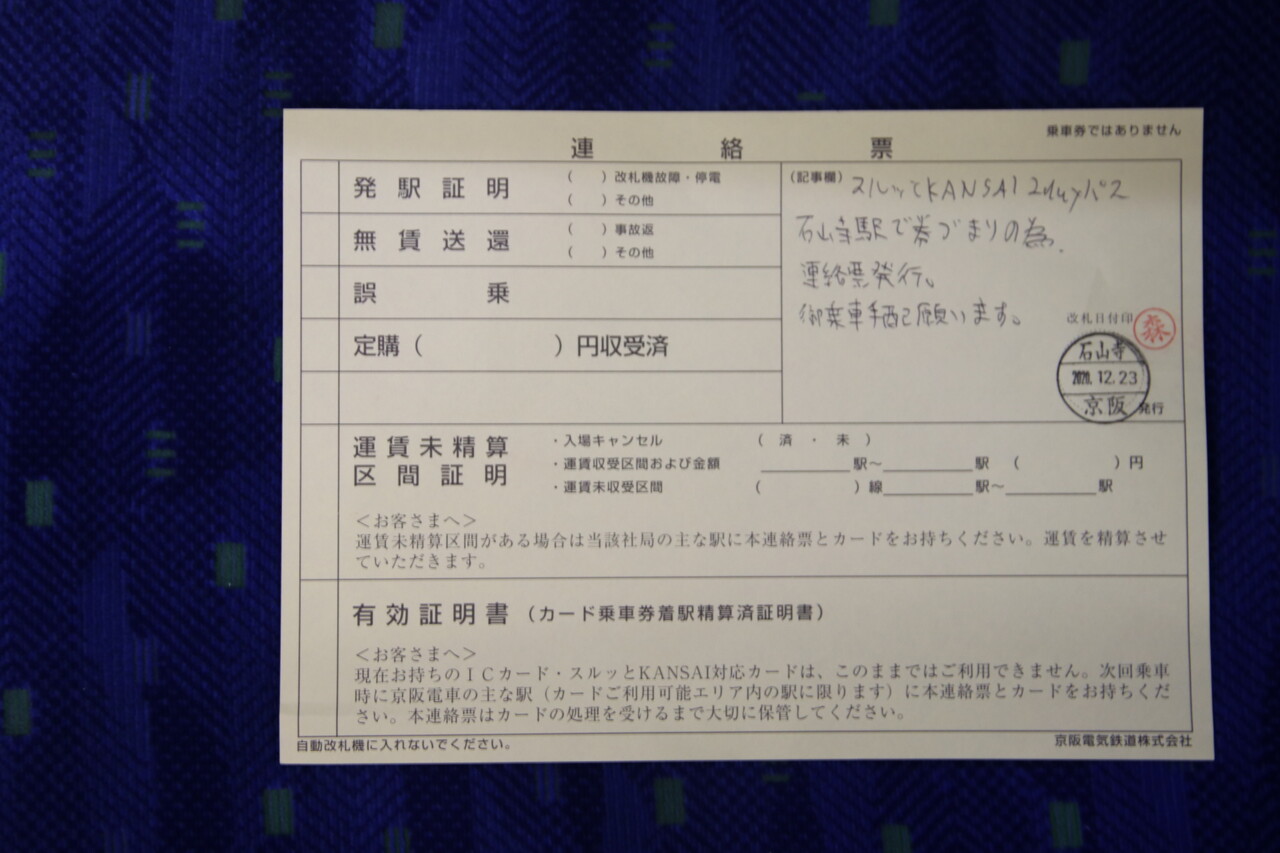 乗車券ではありません
連絡票
発駅証明 ( )改札機故障・停電
( )その他
無賃送還 ( )事故返
( )その他
誤乗
定購( )円収受済
(記事欄) スルッとKANSAI 2dayパス
石山寺駅で券づまりの為.
連絡票発行。
御乗車手配願います。
改札日付印 森
石山寺
2020.12.23
京阪 発行
運賃未精算
区間証明
・入場キャンセル ( 済 ・ 未 )
・運賃収受区間および金額 駅〜 駅 ( )円
・運賃未収受区間 ( )線 駅〜 駅
<お客さまへ>
運賃未精算区間がある場合は当該社局の主な駅に本連絡票とカードをお持ちください。運賃を精算させ
ていただきます。
有効証明書(カード乗車券着駅精算済証明書)
<お客さまへ>
現在お持ちのICカード・スルッとKANSAI対応カードは、このままではご利用できません。次回乗車
時に京阪電車の主な駅(カードご利用可能エリア内の駅に限ります)に本連絡票とカードをお持ちくだ
さい。本連絡票はカードの処理を受けるまで大切に保管してください。
自動改札機に入れないでください。
京阪電気鉄道株式会社